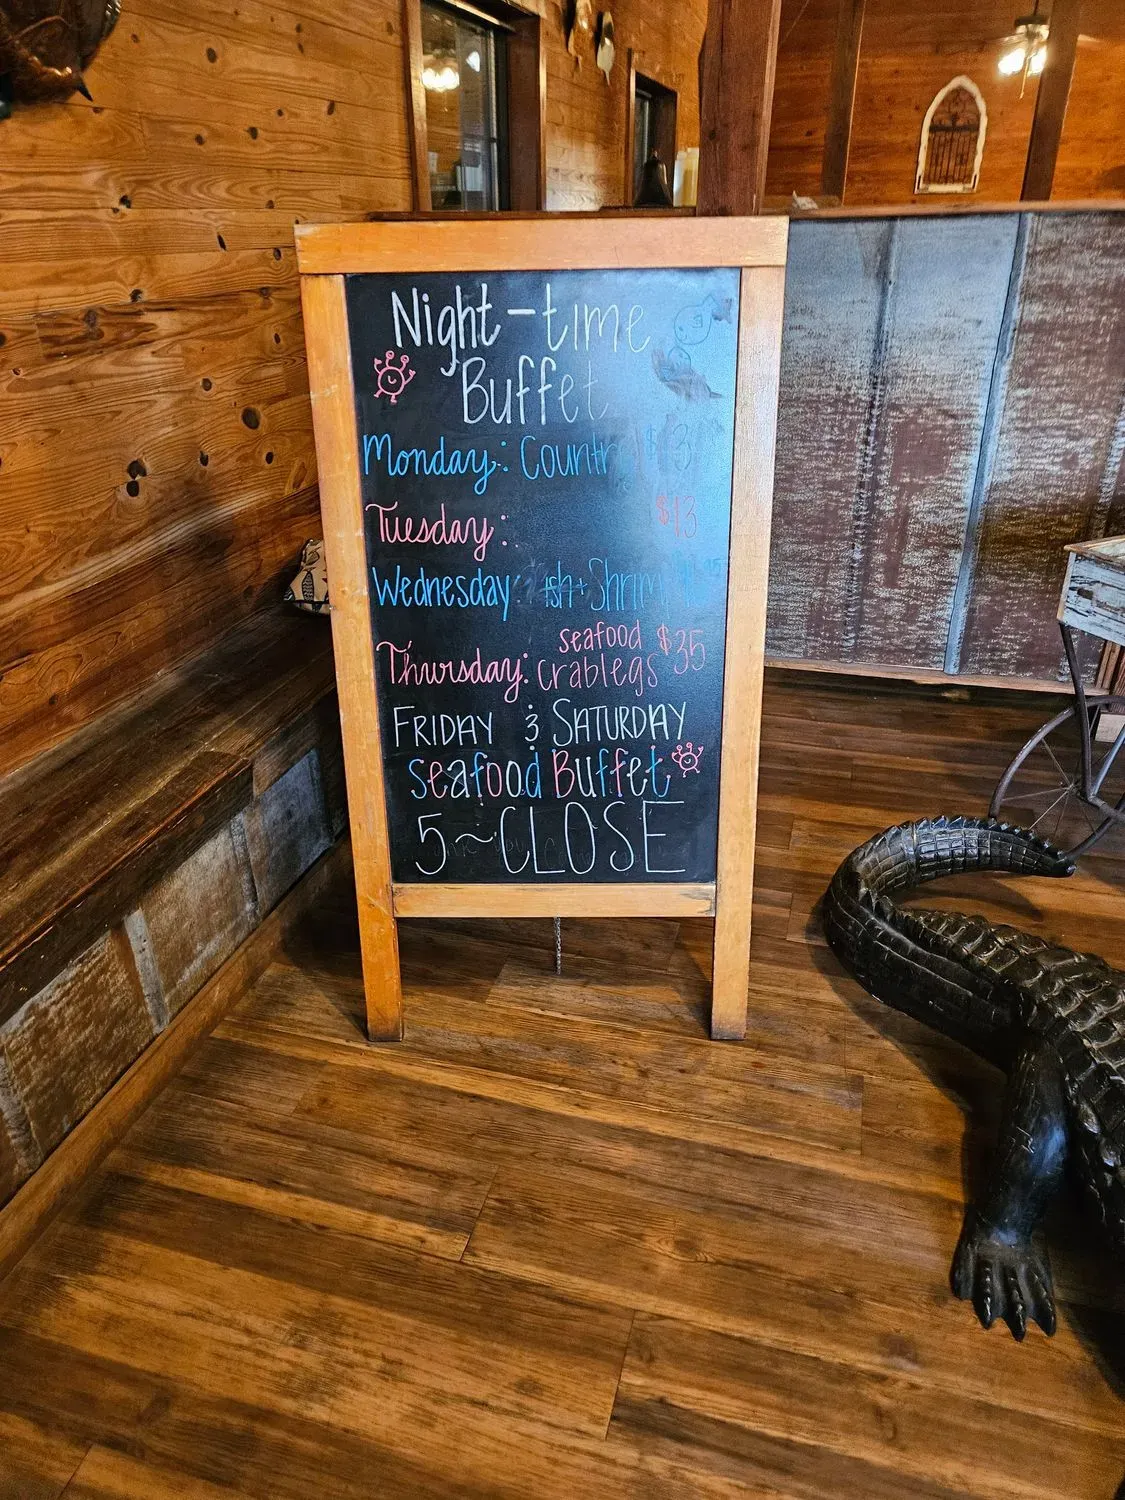 Night-time
Buffet
Monday: Countr
Tuesday: $13
Wednesday: ish + Shrim
Thursday: seafood crablegs $35
FRIDAY & SATURDAY
seafood Buffet
5~CLOSE